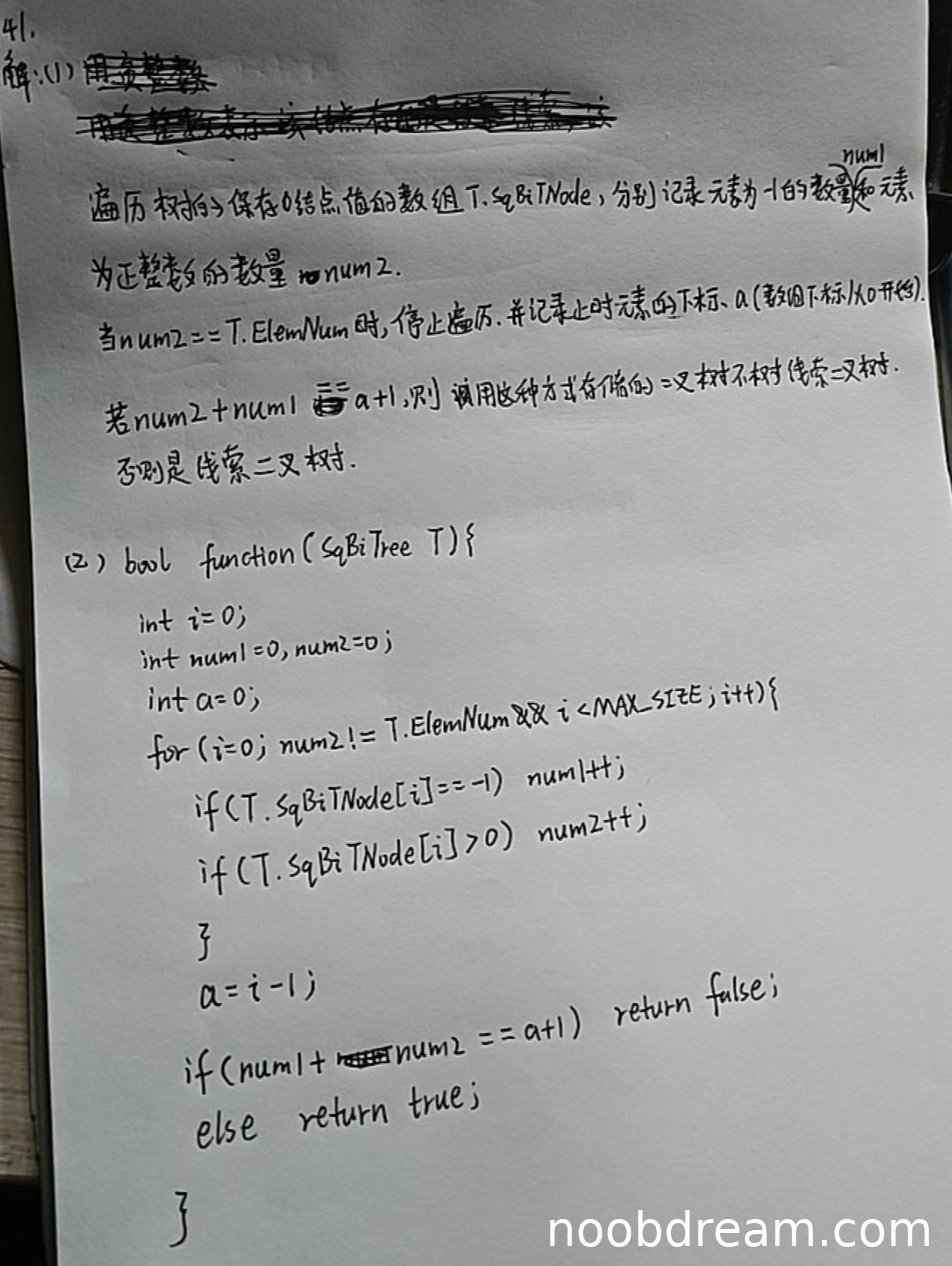 41.
解:(1)
num1
遍历树的保存结点值的数组T.SqBiTNode,分别记录元素为-1的数量和元素
为正整数的数量 num2.
当num2==T.ElemNum时,停止遍历.并记录此时元素的下标、a(数组下标从0开始).
若num2+num1 == a+1,则 用这种方式存储的二叉树不 线索二叉树.
否则是线索二叉树.
(2) bool function(SqBiTree T){
int i=0;
int num1=0,num2=0;
int a=0;
for(i=0; num2!=T.ElemNum&& i<MAX_SIZE; i++){
if(T.SqBiTNode[i]==-1) num1++;
if(T.SqBiTNode[i]>0) num2++;
}
a=i-1;
if(num1+num2==a+1) return false;
else return true;
}
noobdream.com